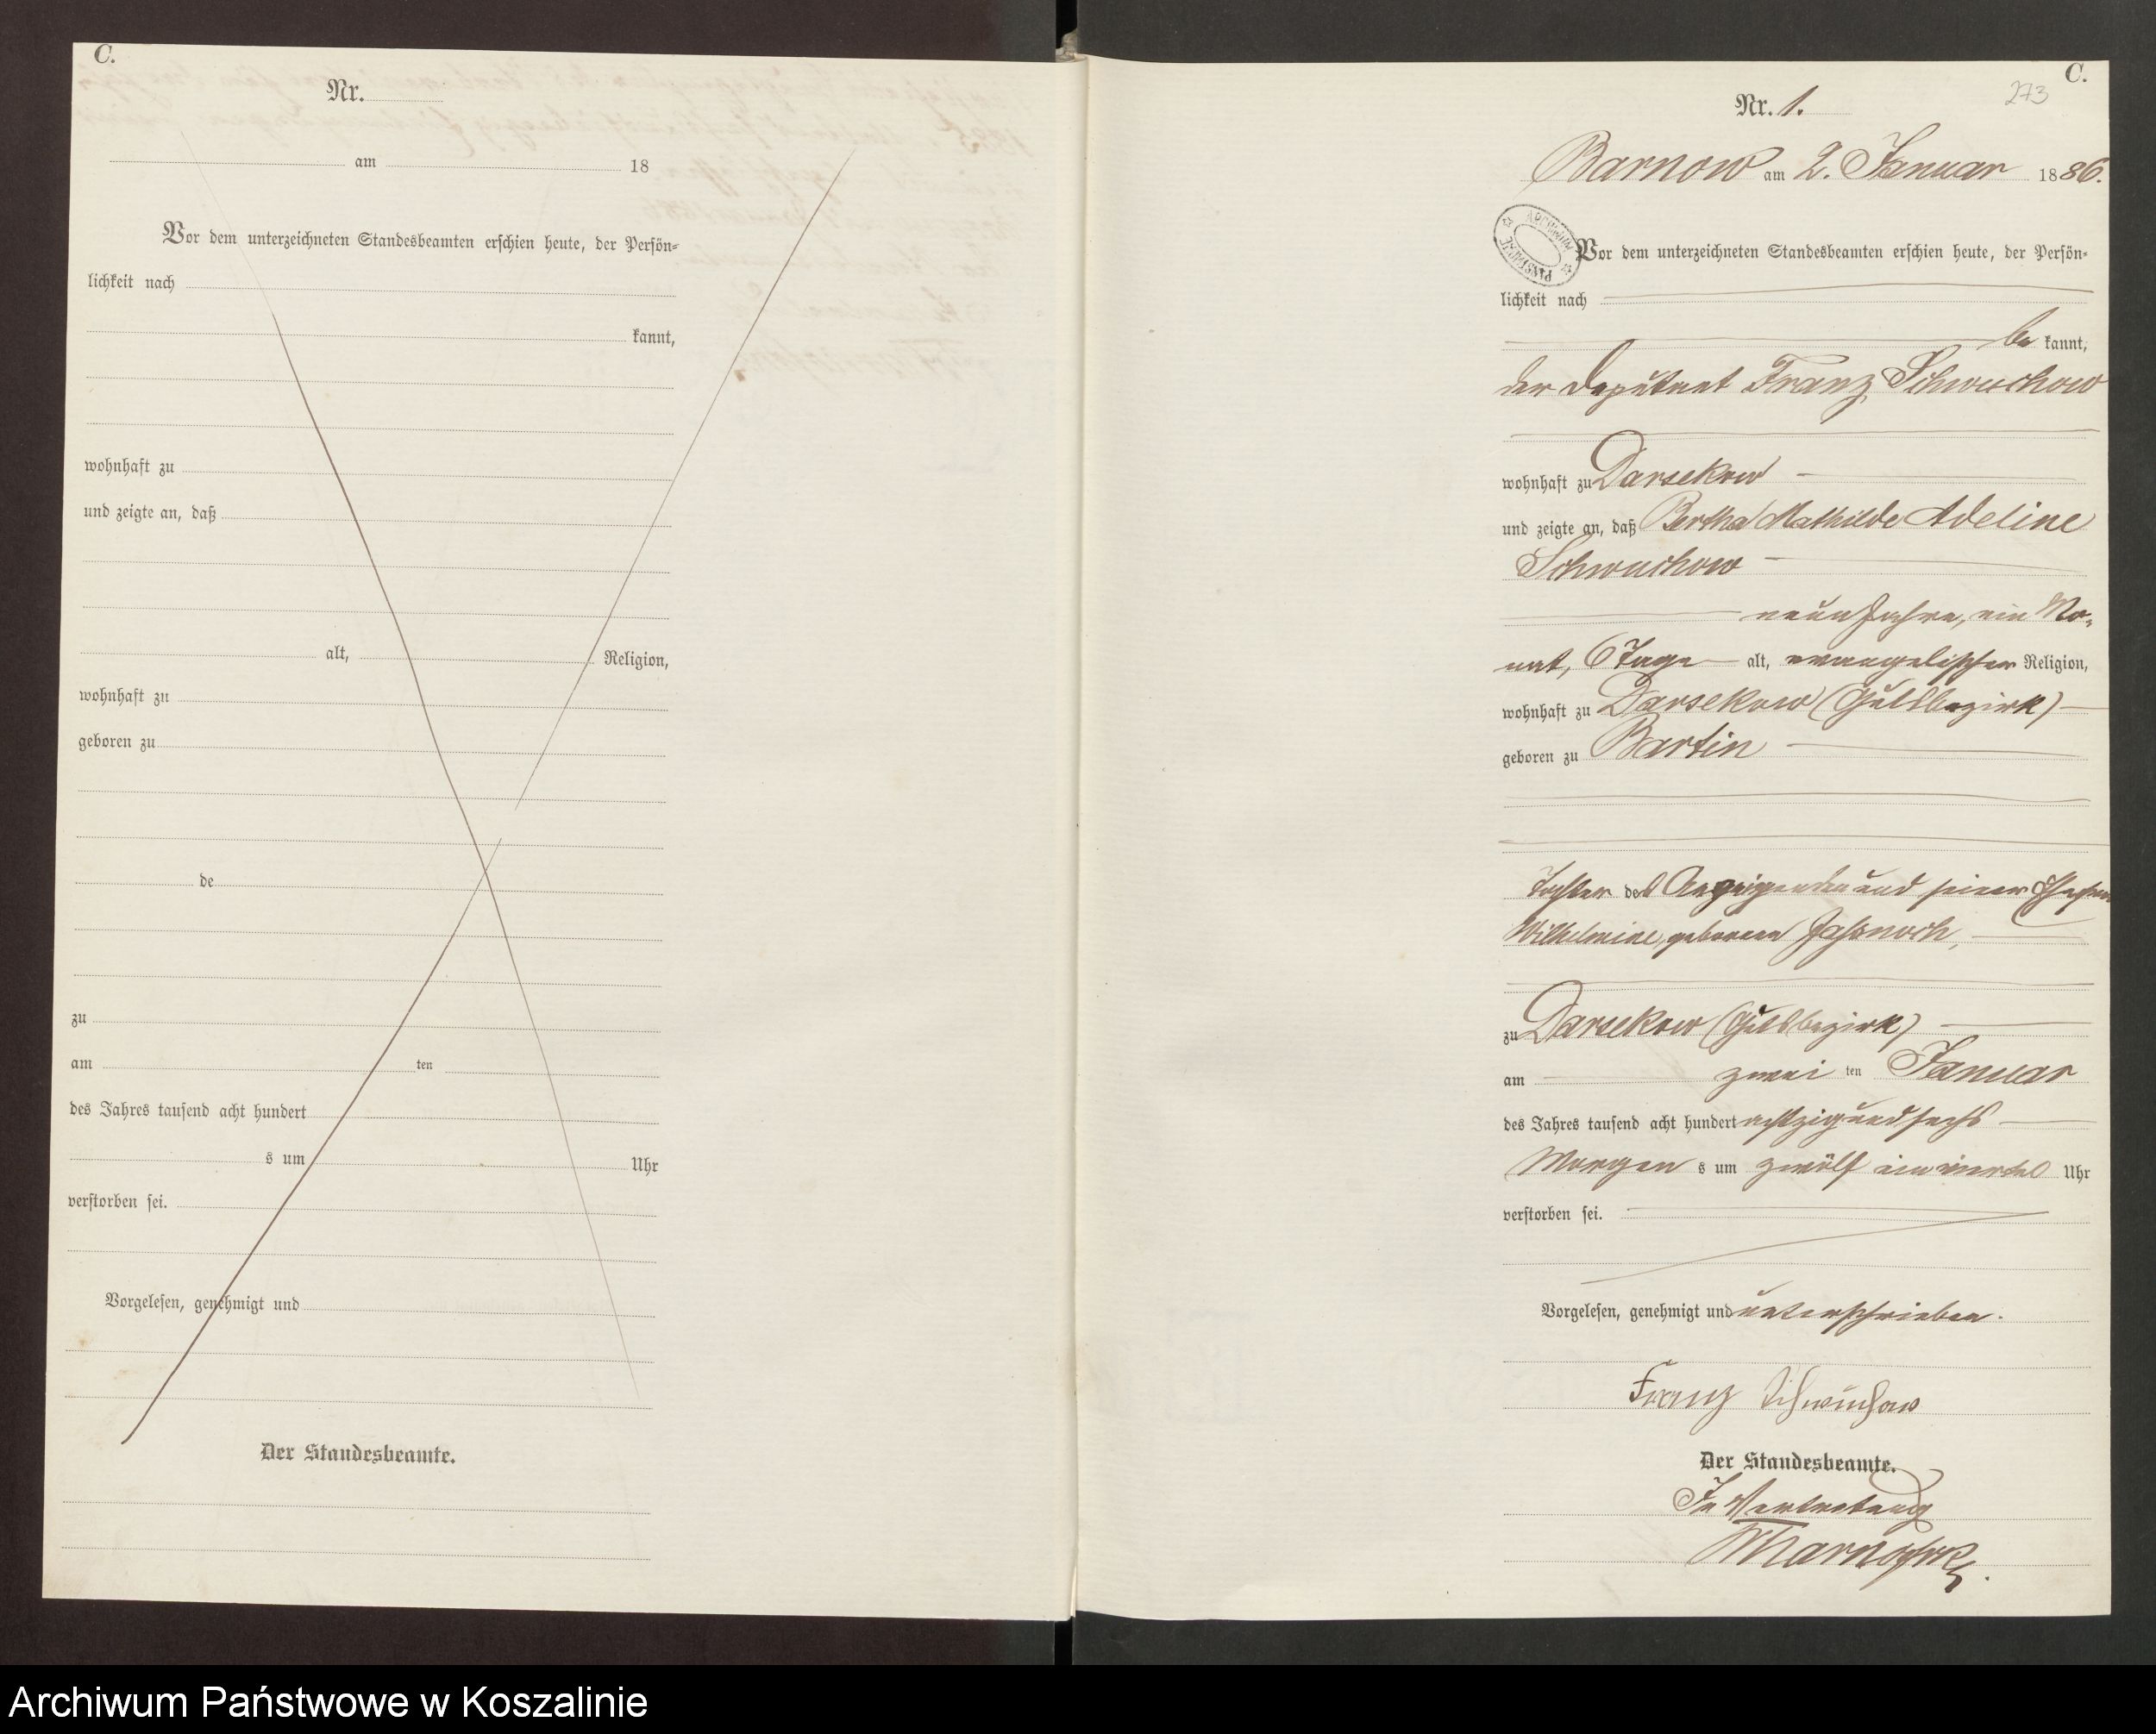 C.
Nr.
am 18
Vor dem unterzeichneten Standesbeamten erschien heute, der Persön-
lichkeit nach
kannt,
wohnhaft zu
und zeigte an, daß
alt, Religion,
wohnhaft zu
geboren zu
de
zu
am ten
des Jahres tausend acht hundert
s um Uhr
verstorben sei.
Vorgelesen, genehmigt und
Der Standesbeamte.
C.
273
Nr. 1.
Barnow am 2. Januar 1886.
ARCHIWUM PAŃSTWOWE
Vor dem unterzeichneten Standesbeamten erschien heute, der Persön-
lichkeit nach
be kannt,
der Deputant Franz Schwuchow
wohnhaft zu Darsekow
und zeigte an, daß Bertha Mathilde Adeline
Schwuchow
neun Jahre, ein Mo-
nat, 6 Tage alt, evangelischer Religion,
wohnhaft zu Darsekow (Gutsbezirk)
geboren zu Bartin
Tochter des Anzeigenden und seiner Ehefrau
Wilhelmine, geborenen
zu Darsekow (Gutsbezirk)
am zwei ten Januar
des Jahres tausend acht hundert achtzig und sechs
Morgen s um zwölf ein viertel Uhr
verstorben sei.
Vorgelesen, genehmigt und unterschrieben.
Franz Schwuchow
Der Standesbeamte.
In Vertretung
Archiwum Państwowe w Koszalinie